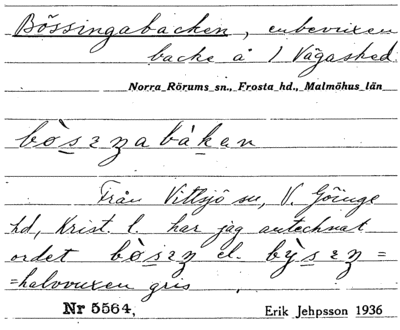 Bössingabacken, enbevuxen
backe å 1 Vägasked
Norra Rörums sn., Frosta hd., Malmöhus län
bòsɛŋabàkan
Från Vittsjö sn, V. Göinge
hd, Krist. l. har jag antecknat
ordet bòsɛŋ el. bỳsɛŋ =
=halvvuxen gris
Nr 5564. Erik Jehpsson 1936